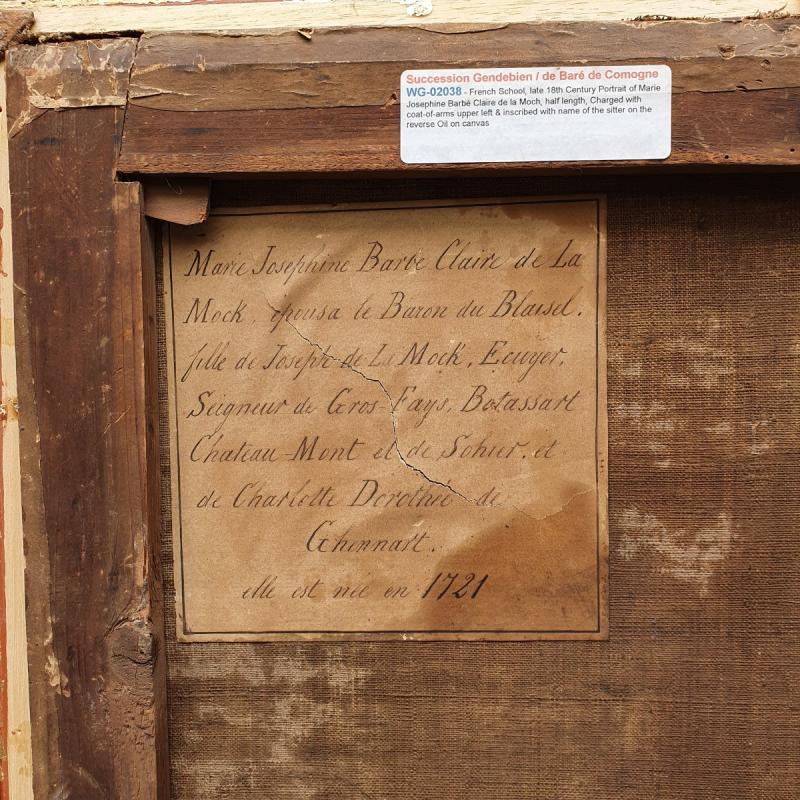 Succession Gendebien / de Baré de Comogne
WG-02038 - French School, late 18th Century Portrait of Marie
Josephine Barbé Claire de la Moch, half length, Charged with
coat-of-arms upper left & inscribed with name of the sitter on the
reverse Oil on canvas
Marie Josephine Barbe Claire de La
Mock, épousa le Baron du Blaisel.
fille de Joseph de La Mock, Ecuyer,
Seigneur de Gros-Fays, Botassart
Chateau-Mont et de Sohier, et
de Charlotte Dorothée de
Ghennart.
elle est née en 1721